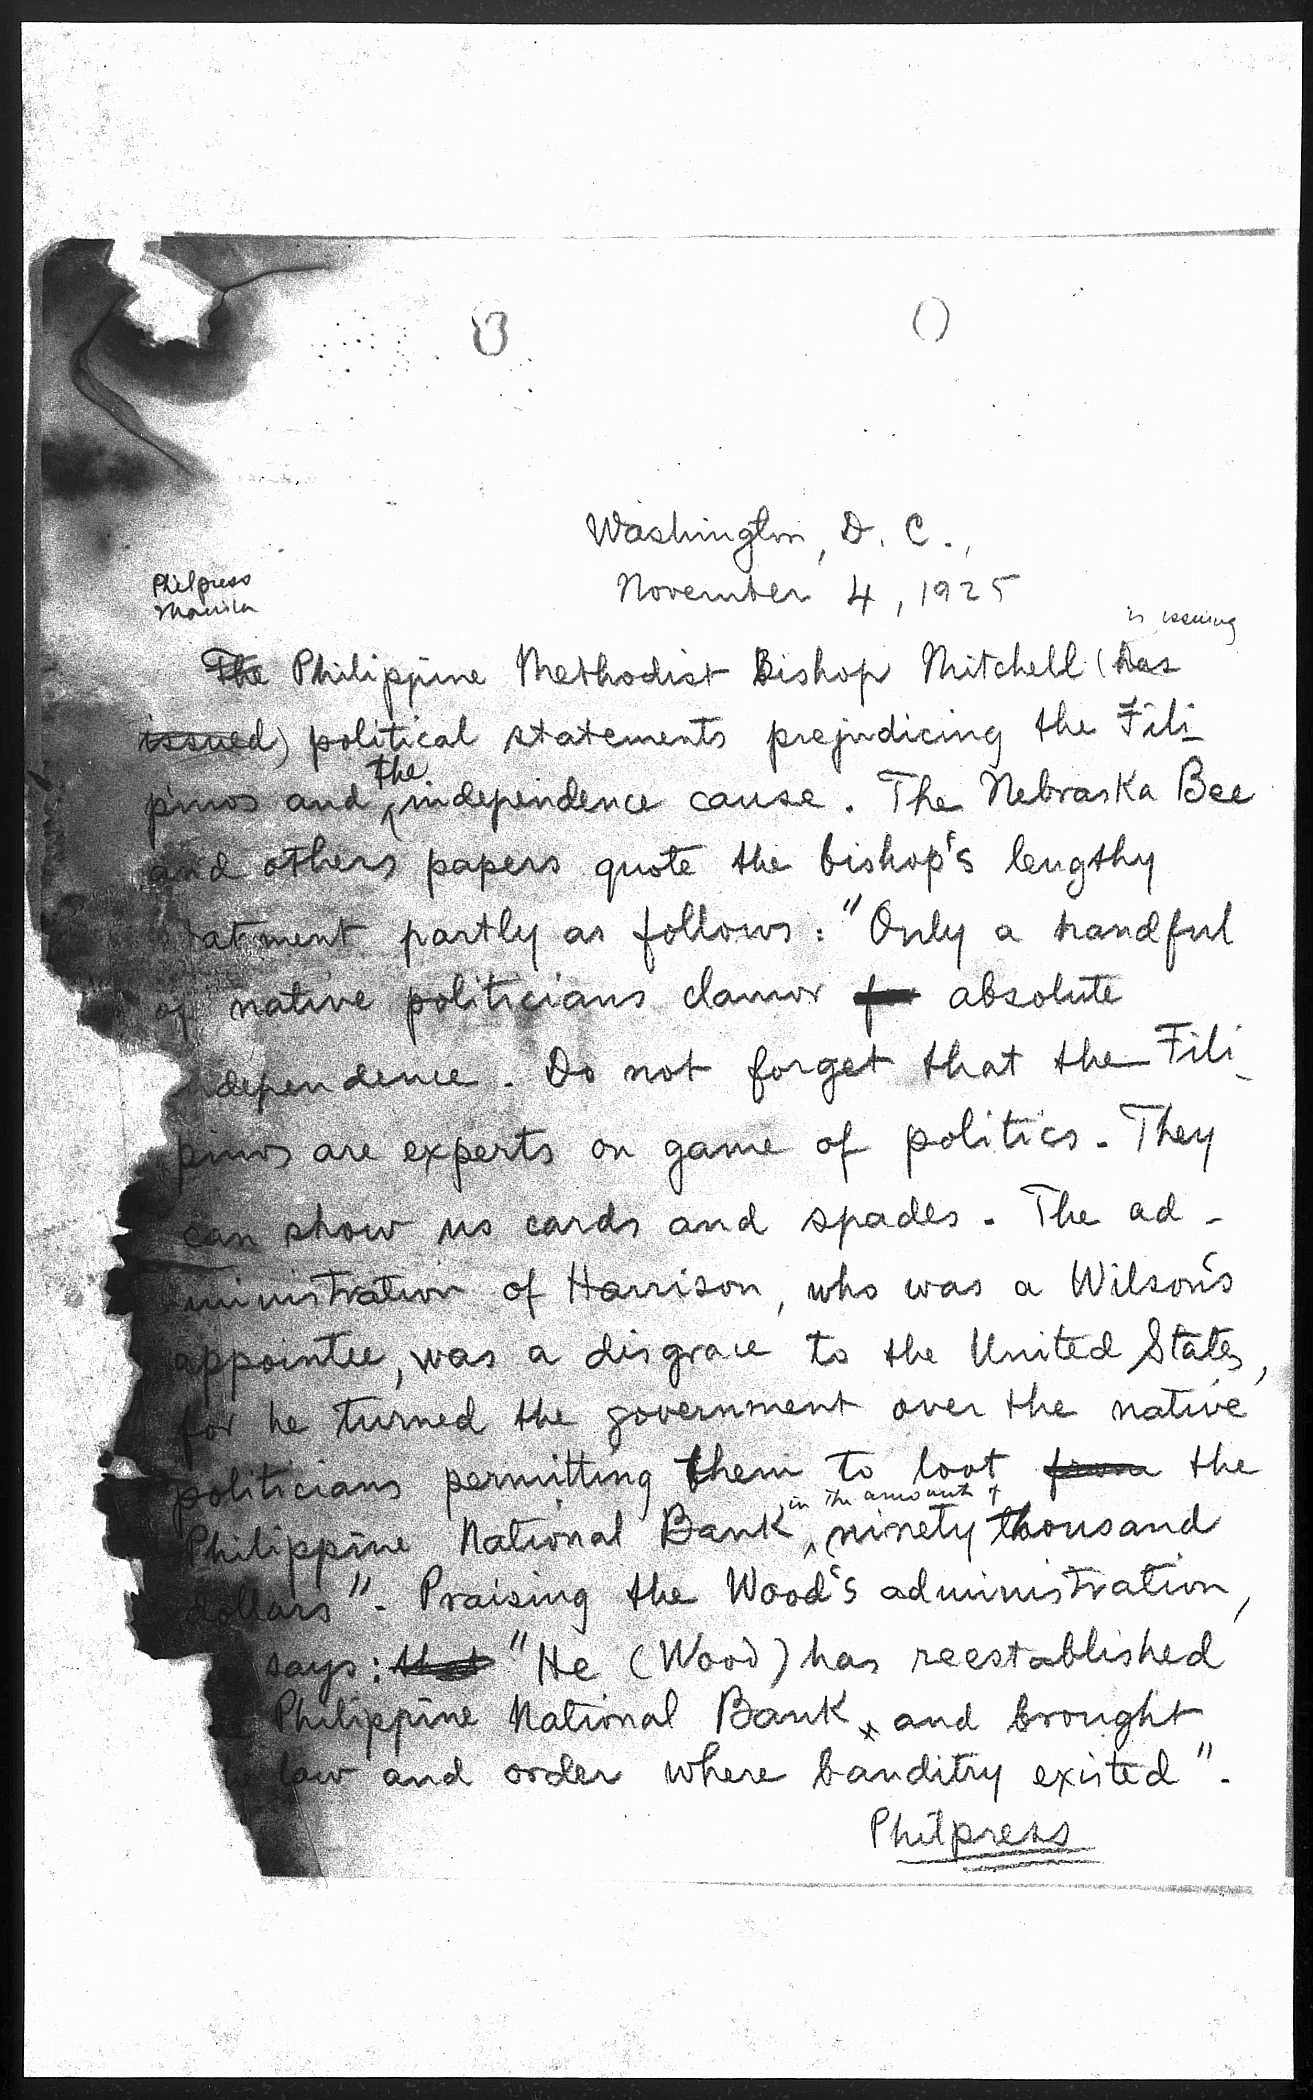 Washington, D. C.,
November 4, 1925
Philpress
Manila
is issuing
The Philippine Methodist Bishop Mitchell (has
issued) political statements prejudicing the Fili-
the
pinos and independence cause. The Nebraska Bee
and others papers quote the bishop's lengthy
atment partly as follows: "Only a handful
of native politicians clamor absolute
dependence. Do not forget that the Fili-
pinos are experts on game of politics. They
can show us cards and spades. The ad-
ministration of Harrison, who was a Wilson's
appointee, was a disgrace to the United States,
for he turned the government over the native
politicians permitting them to loot from the
in the amount of
Philippine National Bank ninety thousand
dollars". Praising the Wood's administration,
says: that "He (Wood) has reestablished
Philippine National Bank x and brought
law and order where banditry existed".
Philpress